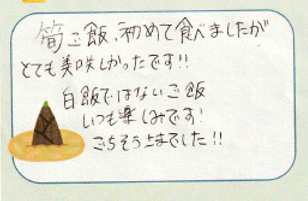 筍ご飯、初めて食べましたが
とても美味しかったです!!
白飯ではないご飯
いつも楽しみです!
ごちそうさまでした!!